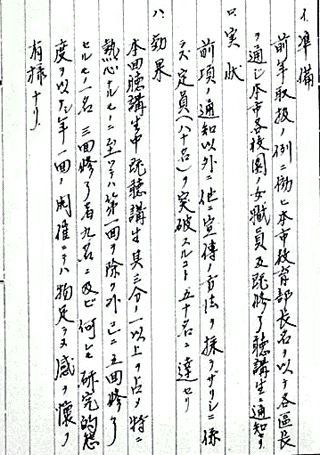 イ、準備
前年取扱ノ例ニ倣ヒ本市教育部長名ヲ以テ各區長
ヲ通シ本市各校園ノ女職員及既修了聽講生ニ通知ス
ロ、実状
前項ノ通知以外ニ他ニ宣傳ノ方法ヲ採ラザリシニ係
ラズ定員(八十名)ヲ突破スルコト五十名ニ達セリ
ハ、効果
本回聽講生中既聽講生其三分ノ一以上ヲ占メ特ニ
熱心ナルモノニ至リテハ第一回ヲ除ク外已ニ五回修了
セルモノ一名三回修了者九名ニ及ビ何レモ研究的態
度ヲ以テ年一回ノ開催ニテハ物足ラヌ感ヲ懐ク
有様ナリ